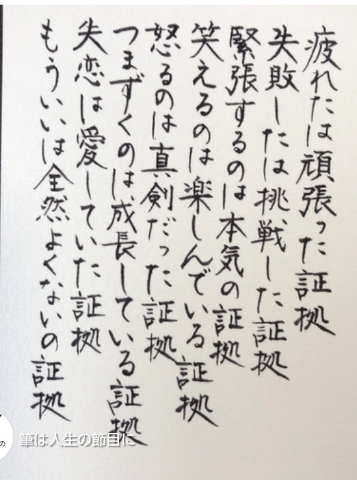 疲れたは頑張った証拠
失敗したは挑戦した証拠
緊張するのは本気の証拠
笑えるのは楽しんでいる証拠
怒るのは真剣だった証拠
つまずくのは成長している証拠
失恋は愛していた証拠
もういいは全然よくないの証拠
筆は人生の節目に